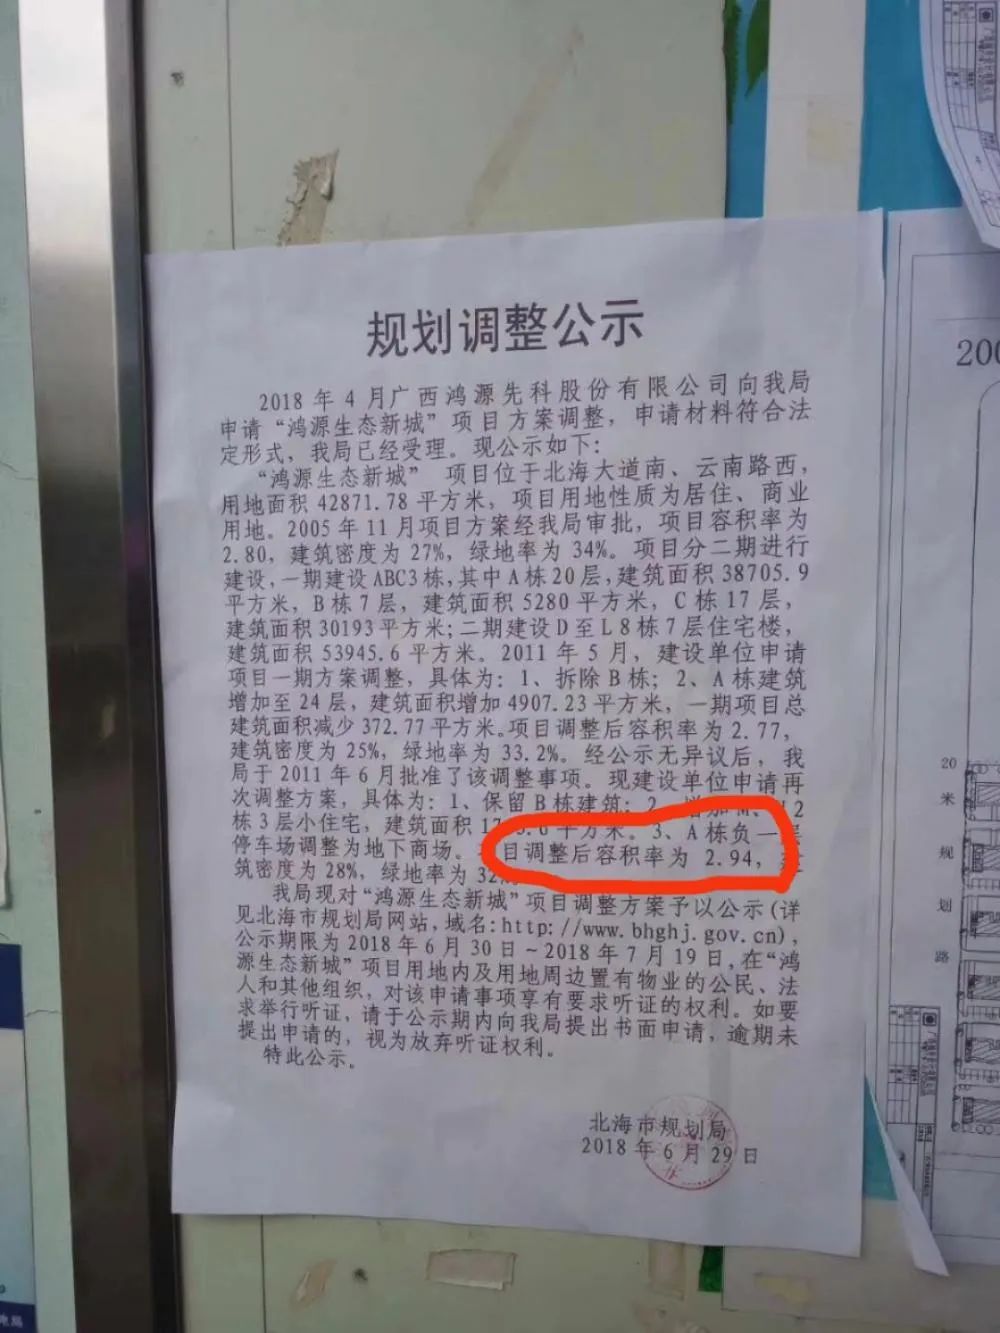 规划调整公示
2018年4月广西鸿源先科股份有限公司向我局
申请“鸿源生态新城”项目方案调整，申请材料符合法
定形式，我局已经受理。现公示如下：
“鸿源生态新城” 项目位于北海大道南、云南路西，
用地面积42871.78平方米，项目用地性质为居住、商业
用地。2005年11月项目方案经我局审批，项目容积率为
2.80，建筑密度为27%，绿地率为34%。项目分二期进行
建设，一期建设ABC3栋，其中A栋20层，建筑面积38705.9
平方米，B栋7层，建筑面积5280平方米，C栋17层，
建筑面积30193平方米；二期建设D至L8栋7层住宅楼，
建筑面积53945.6平方米。2011年5月，建设单位申请
项目一期方案调整，具体为：1、拆除B栋；2、A栋建筑
增加至24层，建筑面积增加4907.23平方米，一期项目总
建筑面积减少372.77平方米。项目调整后容积率为2.77，
建筑密度为25%，绿地率为33.2%。经公示无异议后，我
局于2011年6月批准了该调整事项。现建设单位申请再
次调整方案，具体为：1、保留B栋建筑；2、增加 2
栋3层小住宅，建筑面积1 .6平方米。3、A栋负一层
停车场调整为地下商场。 目调整后容积率为2.94，
筑密度为28%，绿地率为32
我局现对“鸿源生态新城”项目调整方案予以公示（详
见北海市规划局网站，域名：http://www.bhghj.gov.cn），
公示期限为2018年6月30日～2018年7月19日，在“鸿
源生态新城”项目用地内及用地周边置有物业的公民、法
人和其他组织，对该申请事项享有要求听证的权利。如要
求举行听证，请于公示期内向我局提出书面申请，逾期未
提出申请的，视为放弃听证权利。
特此公示。
北海市规划局
2018年6月29日
200
20
米
规
划
路